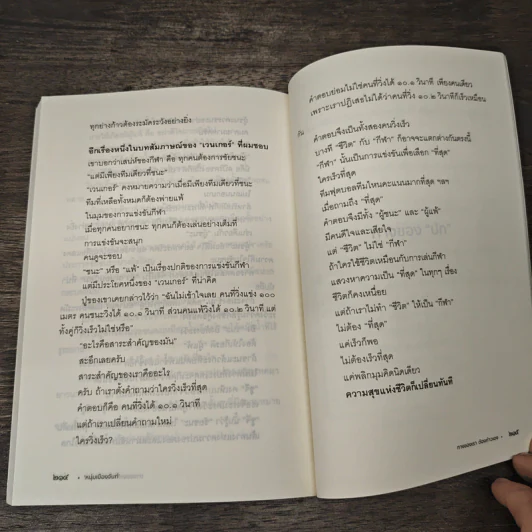 ทุกย่างก้าวต้องระมัดระวังอย่างยิ่ง
อีกเรื่องหนึ่งในบทสัมภาษณ์ของ "เวนเกอร์" ที่ผมชอบ
เขาบอกว่าเสน่ห์ของกีฬา คือ ทุกคนต้องการชัยชนะ
"แต่มีเพียงทีมเดียวที่ชนะ"
"เวนเกอร์" คงหมายความว่าเมื่อมีเพียงทีมเดียวที่ชนะ
ทีมที่เหลือทั้งหมดก็ต้องพ่ายแพ้
ในมุมของการแข่งขันกีฬา
เมื่อทุกคนอยากชนะ ทุกคนก็ต้องเล่นอย่างเต็มที่
การแข่งขันจะสนุก
คนดูจะชอบ
"ชนะ" หรือ "แพ้" เป็นเรื่องปกติของการแข่งขันกีฬา
แต่มีประโยคหนึ่งของ "เวนเกอร์" ที่น่าคิด
ปู่ของเขาเคยกล่าวไว้ว่า "ฉันไม่เข้าใจเลย คนที่วิ่งแข่ง ๑๐๐
เมตร คนชนะวิ่งได้ ๑๐.๑ วินาที ส่วนคนแพ้วิ่งได้ ๑๐.๒ วินาที แต่
ทั้งคู่ก็วิ่งเร็วไม่ใช่หรือ"
"อะไรคือสาระสำคัญของมัน"
สะอึกเลยครับ
สาระสำคัญของเราคืออะไร
ครับ ถ้าเราตั้งคำถามว่าใครวิ่งเร็วที่สุด
คำตอบก็คือ คนที่วิ่งได้ ๑๐.๑ วินาที
แต่ถ้าเราเปลี่ยนคำถามใหม่
ใครวิ่งเร็ว?
๒๑๔ • หนุ่มเมืองจันท์
คำตอบย่อมไม่ใช่คนที่วิ่งได้ ๑๐.๑ วินาที เพียงคนเดียว
เพราะเราปฏิเสธไม่ได้ว่าคนที่วิ่ง ๑๐.๒ วินาทีก็เร็วเหมือน
กัน
คำตอบจึงเป็นทั้งสองคนวิ่งเร็ว
บางที "ชีวิต" กับ "กีฬา" ก็อาจจะแตกต่างกันตรงนี้
"กีฬา" นั้นเป็นการแข่งขันเพื่อเลือก "ที่สุด"
ใครเร็วที่สุด
ทีมฟุตบอลทีมไหนคะแนนมากที่สุด ฯลฯ
เมื่อถามถึง "ที่สุด"
คำตอบจึงมีทั้ง "ผู้ชนะ" และ "ผู้แพ้"
มีคนดีใจและเสียใจ
แต่ "ชีวิต" ไม่ใช่ "กีฬา"
ถ้าใครใช้ชีวิตเหมือนกับการเล่นกีฬา
แสวงหาความเป็น "ที่สุด" ในทุกๆ เรื่อง
ชีวิตก็คงเหนื่อย
แต่ถ้าเราไม่ทำ "ชีวิต" ให้เป็น "กีฬา"
ไม่ต้อง "ที่สุด"
แค่เร็วก็พอ
ไม่ต้องเร็วที่สุด
แค่พลิกมุมคิดนิดเดียว
ความสุขแห่งชีวิตก็เปลี่ยนทันที
๒๑๕